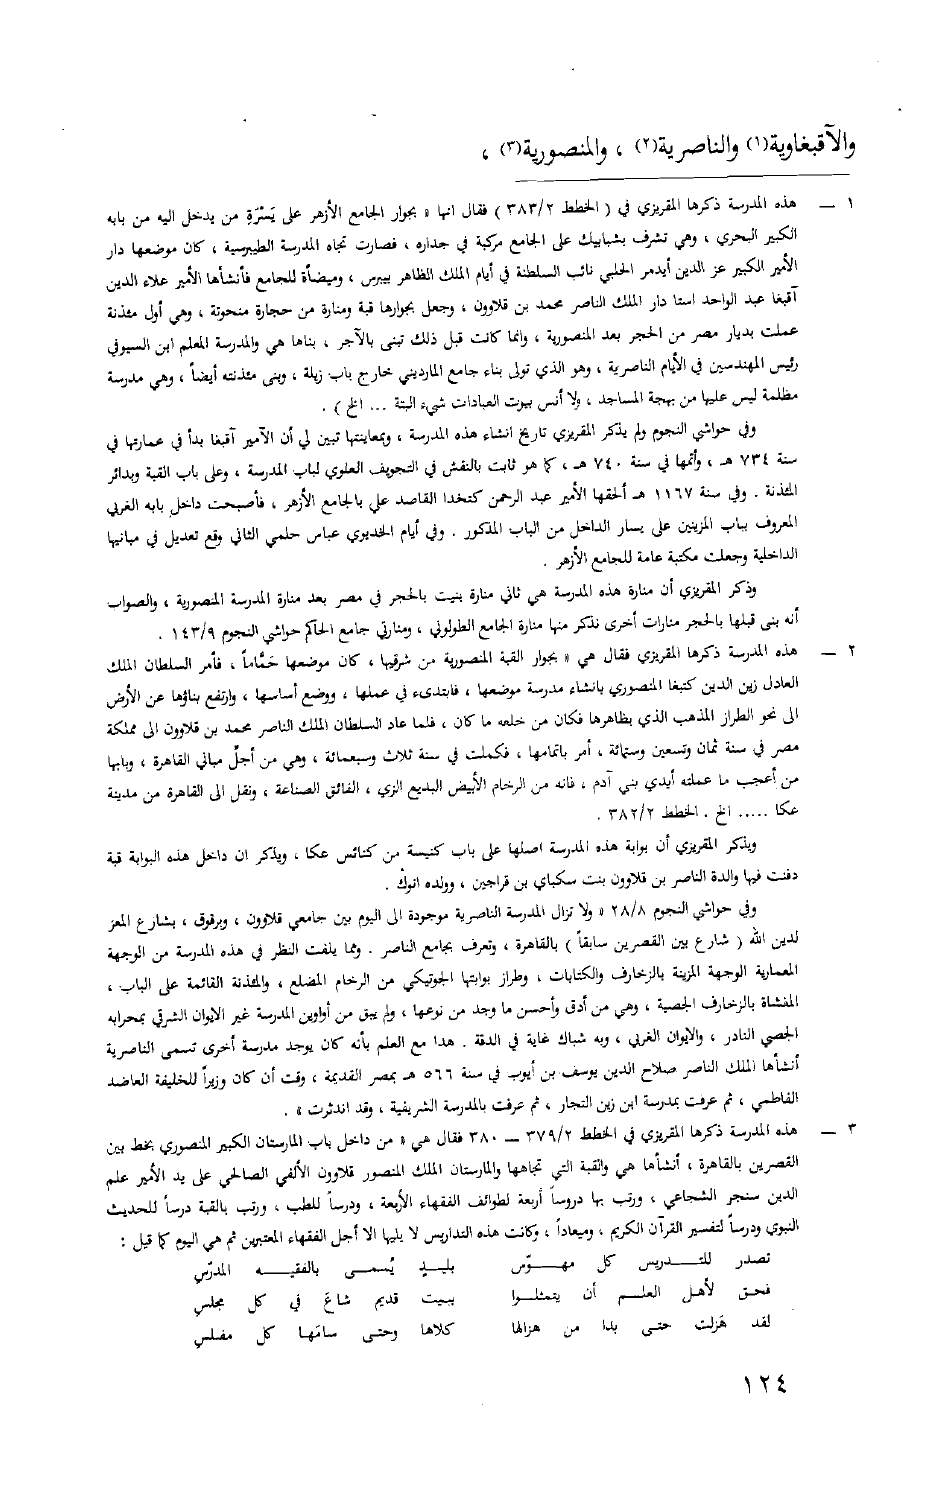 والآقبغاوية(١) والناصرية(٢) ، والمنصورية(٣) ،
١ ــ هذه المدرسة ذكرها المقريزي في ( الخطط ٣٨٣/٢ ) فقال انها « بجوار الجامع الأزهر على يَسْرَةِ من يدخل اليه من بابه
الكبير البحري ، وهي تشرف بشبابيك على الجامع مركبة في جداره ، فصارت تجاه المدرسة الطيبرسية ، كان موضعها دار
الأمير الكبير عز الدين أيدمر الحلبي نائب السلطنة في أيام الملك الظاهر بيبرس ، وميضأة للجامع فأنشأها الأمير علاء الدين
آقبغا عبد الواحد استا دار الملك الناصر محمد بن قلاوون ، وجعل بجوارها قبة ومنارة من حجارة منحوتة ، وهي أول مئذنة
عملت بديار مصر من الحجر بعد المنصورية ، وانما كانت قبل ذلك تبنى بالآجر ، بناها هي والمدرسة المعلم ابن السيوفي
رئيس المهندسين في الأيام الناصرية ، وهو الذي تولى بناء جامع المارديني خارج باب زيلة ، وبنى مئذنته أيضاً ، وهي مدرسة
مظلمة ليس عليها من بهجة المساجد ، ولا أنس بيوت العبادات شيء البتة ... الخ ) .
وفي حواشي النجوم ولم يذكر المقريزي تاريخ انشاء هذه المدرسة ، وبمعاينتها تبين لي أن الآمير آقبغا بدأ في عمارتها في
سنة ٧٣٤ هـ ، وأتمها في سنة ٧٤٠ هـ ، كما هو ثابت بالنقش في التجويف العلوي لباب المدرسة ، وعلى باب القبة وبدائر
المئذنة . وفي سنة ١١٦٧ هـ ألحقها الأمير عبد الرحمن كتخدا القاصد علي بالجامع الأزهر ، فأصبحت داخل بابه الغربي
المعروف بباب المزينين على يسار الداخل من الباب المذكور . وفي أيام الخديوي عباس حلمي الثاني وقع تعديل في مبانيها
الداخلية وجعلت مكتبة عامة للجامع الأزهر .
وذكر المقريزي أن منارة هذه المدرسة هي ثاني منارة بنيت بالحجر في مصر بعد منارة المدرسة المنصورية ، والصواب
أنه بنى قبلها بالحجر منارات أخرى نذكر منها منارة الجامع الطولوني ، ومنارتي جامع الحاكم حواشي النجوم ١٤٣/٩ .
٢ ــ هذه المدرسة ذكرها المقريزي فقال هي « بجوار القبة المنصورية من شرقيها ، كان موضعها حَمَّاماً ، فأمر السلطان الملك
العادل زين الدين كتبغا المنصوري بانشاء مدرسة موضعها ، فابتدىء في عملها ، ووضع أساسها ، وارتفع بناؤها عن الأرض
الى نحو الطراز المذهب الذي بظاهرها فكان من خلعه ما كان ، فلما عاد السلطان الملك الناصر محمد بن قلاوون الى مملكة
مصر في سنة ثمان وتسعين وستمائة ، أمر باتمامها ، فكملت في سنة ثلاث وسبعمائة ، وهي من أجلّ مباني القاهرة ، وبابها
من أعجب ما عملته أيدي بني آدم ، فانه من الرخام الأبيض البديع الزي ، الفائق الصناعة ، ونقل الى القاهرة من مدينة
عكا ..... الخ . الخطط ٣٨٢/٢ .
ويذكر المقريزي أن بوابة هذه المدرسة اصلها على باب كنيسة من كنائس عكا ، ويذكر ان داخل هذه البوابة قبة
دفنت فيها والدة الناصر بن قلاوون بنت سكباي بن قراجين ، وولده انوك .
وفي حواشي النجوم ٢٨/٨ « ولا تزال المدرسة الناصرية موجودة الى اليوم بين جامعي قلاوون ، وبرقوق ، بشارع المعز
لدين الله ( شارع بين القصرين سابقاً ) بالقاهرة ، وتعرف بجامع الناصر . ومما يلفت النظر في هذه المدرسة من الوجهة
المعمارية الوجهة المزينة بالزخارف والكتابات ، وطراز بوابتها الجوتيكي من الرخام المضلع ، والمئذنة القائمة على الباب ،
المغشاة بالزخارف الجصية ، وهي من أدق وأحسن ما وجد من نوعها ، ولم يبق من أواوين المدرسة غير الايوان الشرقي بمحرابه
الجصي النادر ، والايوان الغربي ، وبه شباك غاية في الدقة . هدا مع العلم بأنه كان يوجد مدرسة أخرى تسمى الناصرية
أنشأها الملك الناصر صلاح الدين يوسف بن أيوب في سنة ٥٦٦ هـ بمصر القديمة ، وقت أن كان وزيراً للخليفة العاضد
الفاطمي ، ثم عرفت بمدرسة ابن زين التجار ، ثم عرفت بالمدرسة الشريفية ، وقد اندثرت » .
٣ ــ هذه المدرسة ذكرها المقريزي في الخطط ٣٧٩/٢ ــ ٣٨٠ فقال هي « من داخل باب المارستان الكبير المنصوري بخط بين
القصرين بالقاهرة ، أنشأها هي والقبة التي تجاهها والمارستان الملك المنصور قلاوون الألفي الصالحي على يد الأمير علم
الدين سنجر الشجاعي ، ورتب بها دروساً أربعة لطوائف الفقهاء الأربعة ، ودرساً للطب ، ورتب بالقبة درساً للحديث
النبوي ودرساً لتفسير القرآن الكريم ، وميعاداً ، وكانت هذه التداريس لا يليها الا أجل الفقهاء المعتبرين ثم هي اليوم كما قيل :
تصدر للتـدريس كل مهـوّس بليـدٍ يُسمـى بالفقيـه المدرّسِ
فحق لأهل العلـم أن يتمثلـوا ببيت قديم شاعَ في كل مجلسِ
لقد هَزلت حتـى بدا من هزالها كلاها وحتى سامَها كل مفلسِ
١٢٤